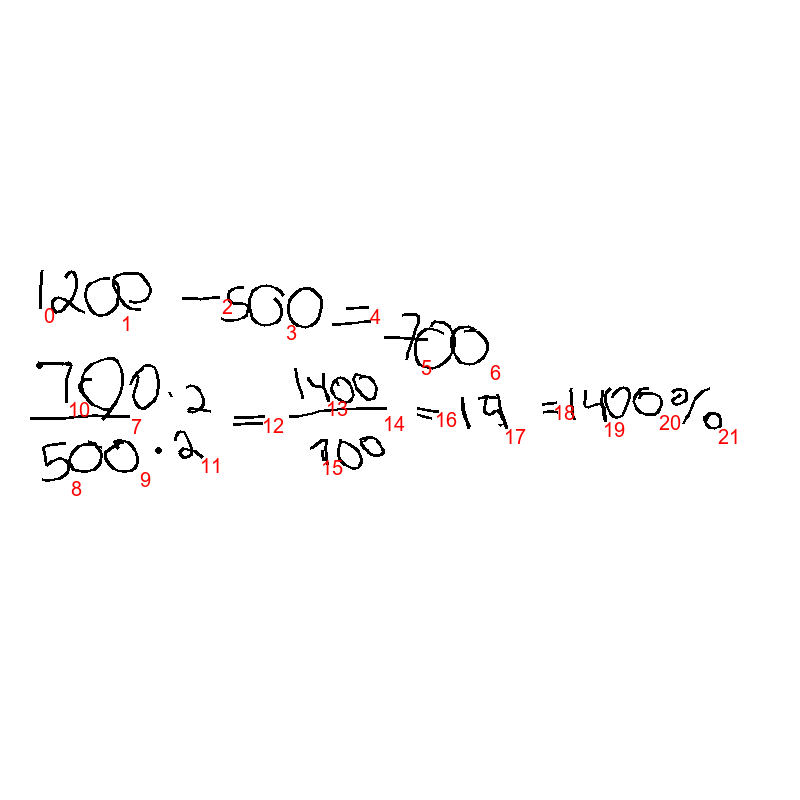 1200 - 500 = 700
700 · 2 / 500 · 2 = 1400 / 100 = 14 = 1400%
0 1 2 3 4 5 6 7 8 9 10 11 12 13 14 15 16 17 18 19 20 21